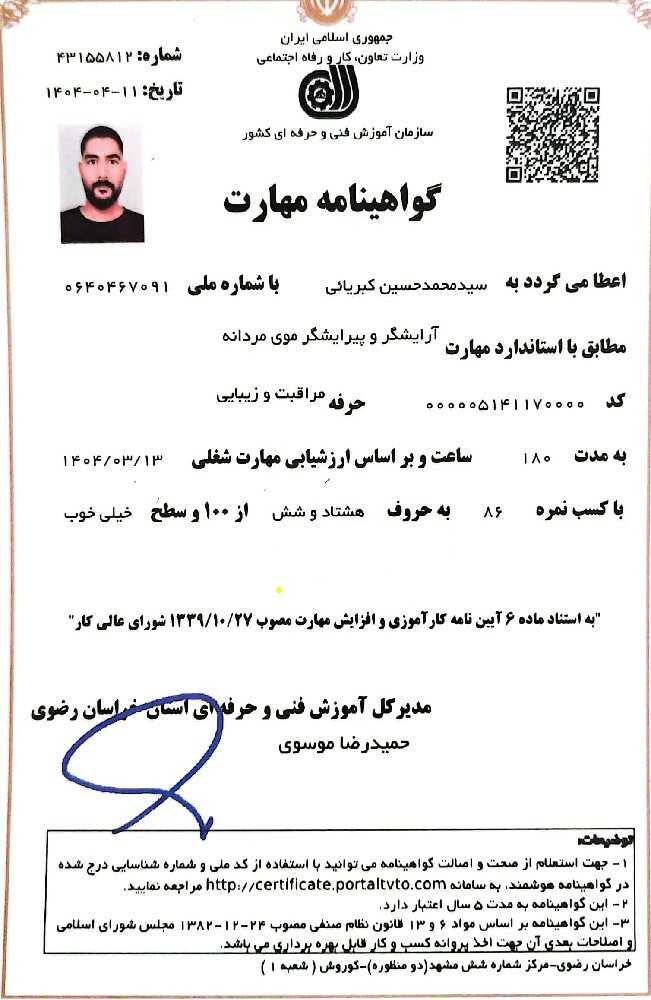 جمهوری اسلامی ایران
وزارت تعاون، کار و رفاه اجتماعی
سازمان آموزش فنی و حرفه ای کشور
شماره: ۴۳۱۵۵۸۱۲
تاریخ: ۱۴۰۴-۰۴-۱۱
گواهینامه مهارت
اعطا می گردد به سیدمحمدحسین کبریائی با شماره ملی ۰۶۴۰۴۶۷۰۹۱
مطابق با استاندارد مهارت آرایشگر و پیرایشگر موی مردانه
کد ۰۰۰۰۰۵۱۴۱۱۷۰۰۰۰ حرفه مراقبت و زیبایی
به مدت ۱۸۰ ساعت و بر اساس ارزشیابی مهارت شغلی ۱۴۰۴/۰۳/۱۳
با کسب نمره ۸۶ به حروف هشتاد و شش از ۱۰۰ و سطح خیلی خوب
"به استناد ماده ۶ آیین نامه کارآموزی و افزایش مهارت مصوب ۱۳۳۹/۱۰/۲۷ شورای عالی کار"
مدیرکل آموزش فنی و حرفه ای استان خراسان رضوی
حمیدرضا موسوی
توضیحات:
۱- جهت استعلام از صحت و اصالت گواهینامه می توانید با استفاده از کد ملی و شماره شناسایی درج شده
در گواهینامه هوشمند، به سامانه http://certificate.portaltvto.com مراجعه نمایید.
۲- این گواهینامه به مدت ۵ سال اعتبار دارد.
۳- این گواهینامه بر اساس مواد ۶ و ۱۳ قانون نظام صنفی مصوب ۲۴-۱۲-۱۳۸۲ مجلس شورای اسلامی
و اصلاحات بعدی آن جهت اخذ پروانه کسب و کار قابل بهره برداری می باشد.
خراسان رضوی-مرکز شماره شش مشهد(دو منظوره)-کوروش ( شعبه ۱ )